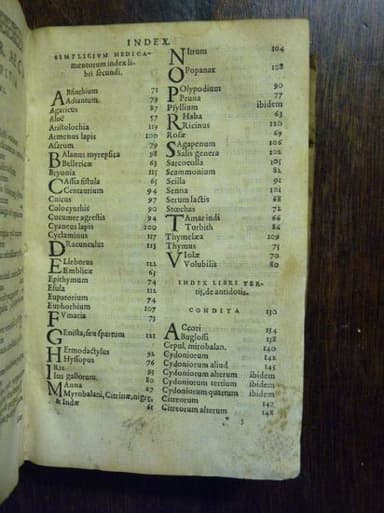 INDEX.
SIMPLICIVM MEDICA-
mentorum index li-
bri secundi.
ABsinthium 71
Adiantum. 79
Agaricus 87
Aloë 57
Aristolochia 119
Armenus lapis 100
Asarum 79
BAlanus myrepsica 98
Bellericæ 63
Bryonia 115
CAssia fistula 65
Centaurium 94
Cnicus 97
Colocynthis 90
Cucumer agrestis 94
Cyaneus lapis 100
Cyclaminus 117
DRacunculus 113
ELleborus 112
Emblicæ 63
Epithymum 74
Esula 112
Eupatorium 74
Euphorbium 107
FVmaria 73
GEnista, seu spartum 121
HErmodactylus 92
Hyssopus 76
IRis 95
Ius gallorum. 80
MAnna 67
Myrobalani, Citrinæ, nigræ,
& Indæ 61
NItrum 104
OPopanax 108
POlypodium 90
Pruna 77
Psyllium ibidem
RHaba 63
Ricinus 120
Rosæ 69
SAgapenum 106
Salis genera 102
Sarcocolla 105
Scammonium 81
Scilla 91
Senna 101
Serum lactis 68
Stœchas 72
TAmarindi 66
Turbith 86
Thymelæa 109
Thymus 75
VIolæ 70
Volubilis 80
INDEX LIBRI TER-
tij, de antidotis.
CONDITA 130
ACcori 134
Buglossi 132
Cepul. mirobalan. 140
Cydoniorum 142
Cydoniorum aliud 145
Cydoniorum alterum ibidem
Cydoniorum tertium ibidem
Cydoniorum quartum ibidem
Citreorum 142
Citreorum alterum 148
* 5